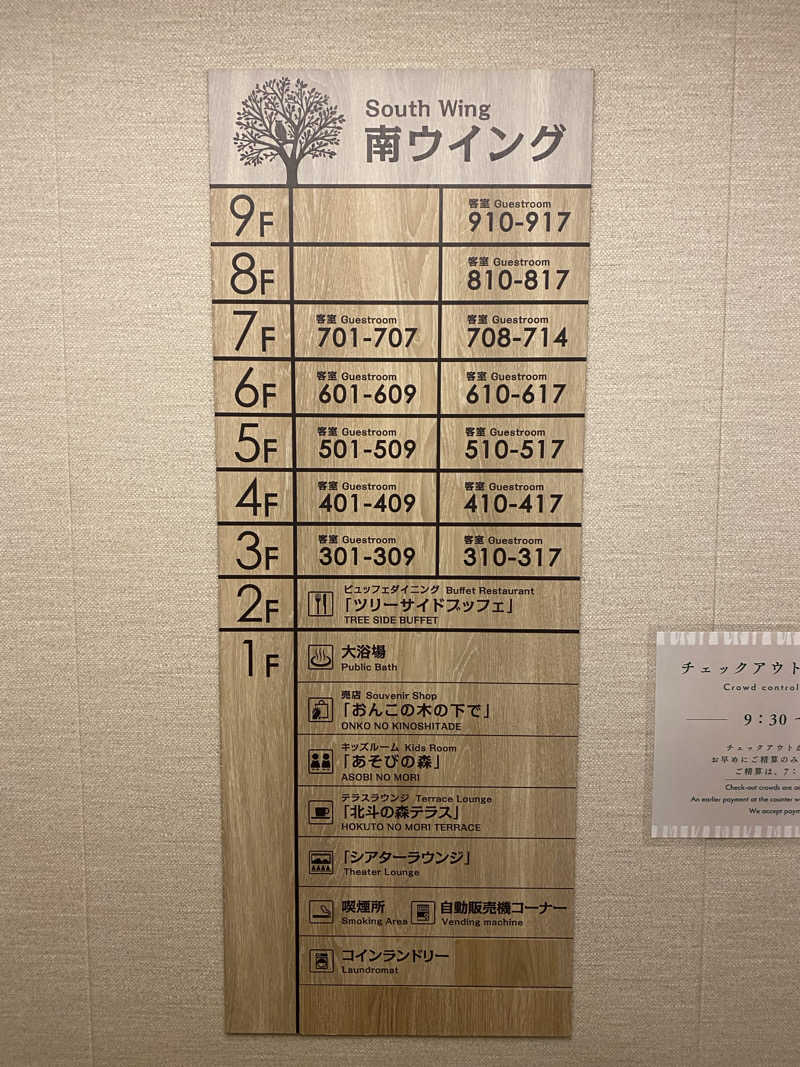 South Wing
南ウイング
9F
客室 Guestroom
910-917
8F
客室 Guestroom
810-817
7F
客室 Guestroom
701-707
客室 Guestroom
708-714
6F
客室 Guestroom
601-609
客室 Guestroom
610-617
5F
客室 Guestroom
501-509
客室 Guestroom
510-517
4F
客室 Guestroom
401-409
客室 Guestroom
410-417
3F
客室 Guestroom
301-309
客室 Guestroom
310-317
2F
ビュッフェダイニング Buffet Restaurant
「ツリーサイドブッフェ」
TREE SIDE BUFFET
1F
大浴場
Public Bath
売店 Souvenir Shop
「おんこの木の下で」
ONKO NO KINOSHITADE
キッズルーム Kids Room
「あそびの森」
ASOBI NO MORI
テラスラウンジ Terrace Lounge
「北斗の森テラス」
HOKUTO NO MORI TERRACE
「シアターラウンジ」
Theater Lounge
喫煙所
Smoking Area
自動販売機コーナー
Vending machine
コインランドリー
Laundromat
チェックアウト
Crowd control
9:30
チェックアウト
お早めにご精算のみ
ご精算は、7:
Check-out crowds are
An earlier payment at the counter
We accept